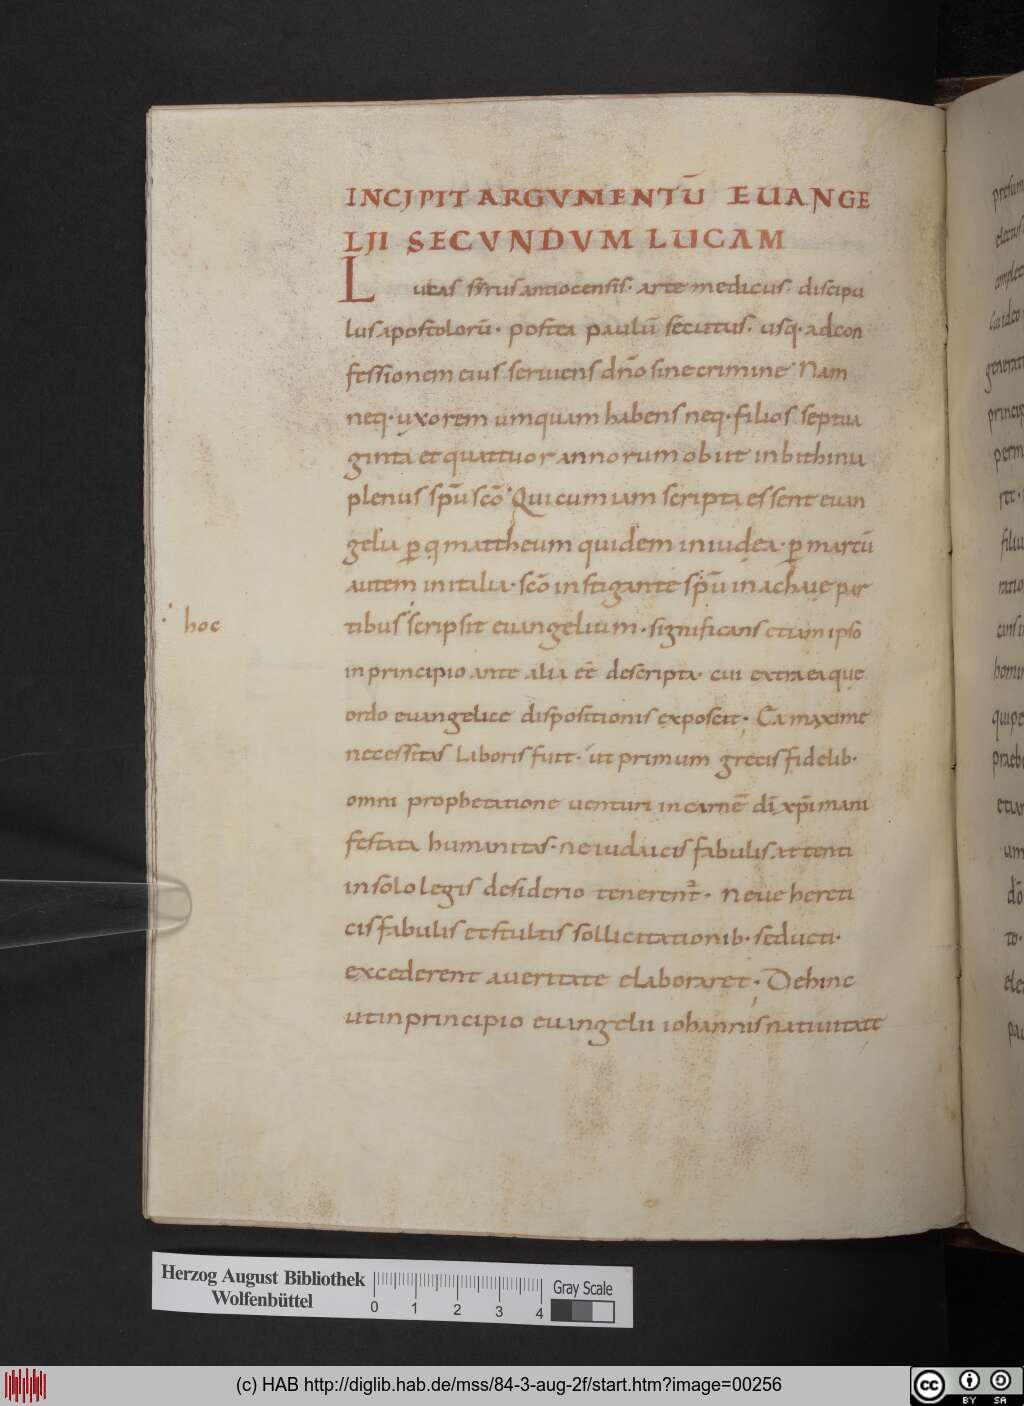 INCIPIT ARGVMENTŪ EUANGE
LII SECVNDVM LUCAM
Lucas syrus antiocensis· arte medicus· discipu
lus apostolorū· postea paulū secutus· usq· ad con
fessionem eius seruiens dño sine crimine· Nam
neq· uxorem umquam habens neq· filios septua
ginta et quattuor annorum obiit in bithinia
plenus spū scō· Qui cum iam scripta essent euan
gelia ꝑ q mattheum quidem in iudea· ꝑ marcū
autem in italia· scō instigante spū in achaie par
hoc
tibus scripsit euangelium· significans etiam ipso
in principio ante alia eē descripta· cui extra ea que
ordo euangelice dispositionis exposcit· Ea maxime
necessitas laboris fuit· ut primum grecis fidelib·
omni prophetatione uenturi in carnē dī xp̄i mani
festata humanitas· ne iudaicis fabulis attenti
in solo legis desiderio tenerent̄· Neue hereti
cis fabulis et stultis sollicitationib· seducti·
excederent a ueritate elaboraret· Dehinc
ut in principio euangelii iohannis natiuitate
presum
electus
amplec
cui ideo
generati
princip
perm
ret·
filiu
ratio
homin
quipe
praebe
etiam
um
dō
to·
elec
pau
Herzog August Bibliothek
Wolfenbüttel
0 1 2 3 4
Gray Scale
(c) HAB http://diglib.hab.de/mss/84-3-aug-2f/start.htm?image=00256
cc BY SA